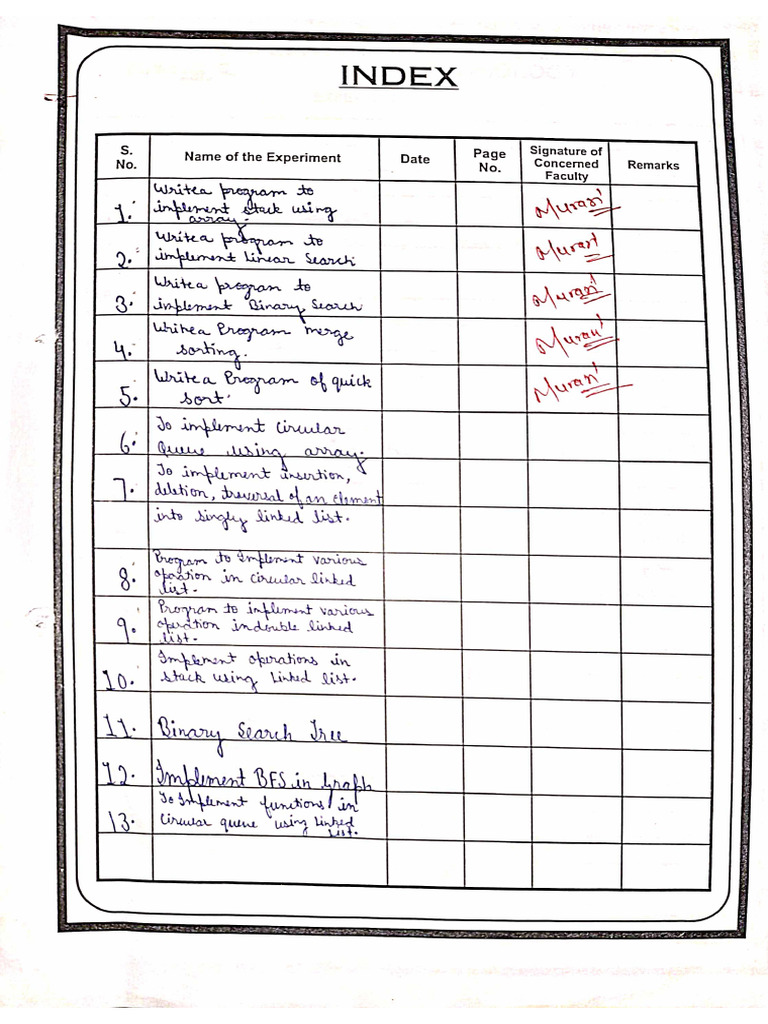 INDEX
S. No.
Name of the Experiment
Date
Page No.
Signature of Concerned Faculty
Remarks
1. Write a program to
implement stack using
array.
Murari
2. Write a program to
implement Linear Search
Murari
3. Write a program to
implement Binary Search
Murari
4. Write a Program merge
sorting.
Murari
5. Write a Program of quick
sort.
Murari
6. To implement circular
Queue using array.
7. To implement insertion,
deletion, traversal of an element
into singly linked list.
8. Program to Implement various
operation in circular linked
list.
9. Program to implement various
operation in double linked
list.
10. Implement operations in
stack using Linked list.
11. Binary Search Tree
12. Implement BFS in Graph
13. To Implement functions in
circular queue using Linked
List.